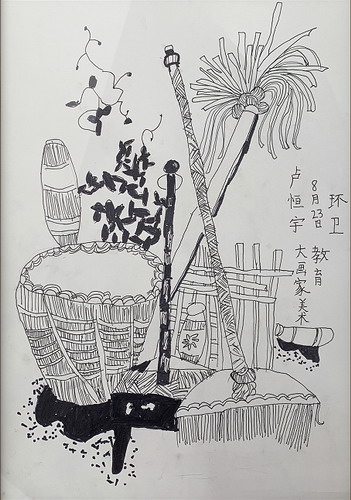 卢恒宇
8月23日
环卫
大画家美术
教育